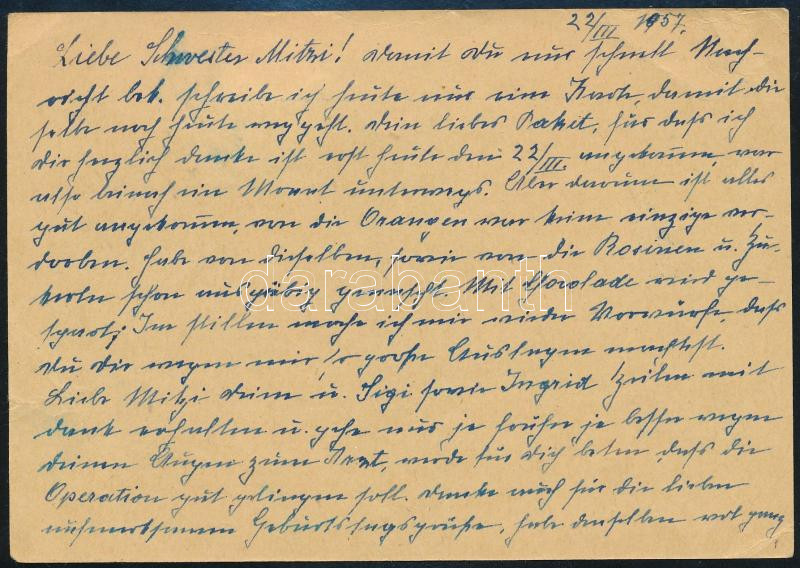 22/III 1957.
Liebe Schwester Mitzi! Damit du nur schnell Nach-
richt bek. schreibe ich heute nur eine Karte, damit die
selbe noch heute weggeht. Dein liebes Paket, für dass ich
dir herzlich danke ist erst heute den 22/III. angekommen, war
also beinah ein Monat unterwegs. Aber darum ist alles
gut angekommen, von die Orangen war keine einzige ver-
dorben. Habe von dieselben, sowie von die Rosinen u. Zu-
kerln schon ausgiebig genascht. Mit Schokolade wird ge-
spart; Im stillen mache ich mir wieder Vorwürfe, dass
du dir wegen mir so große Auslagen machtest.
Liebe Mitzi deine u. Sigi sowie Ingrid Zeilen mit
dank erhalten u. gehe nur je früher je besser wegen
deinen Augen zum Arzt, werde für dich beten dass die
Operation gut gelingen soll. Danke auch für die lieben
Geburtstagsgrüße, habe denselben
darabanth